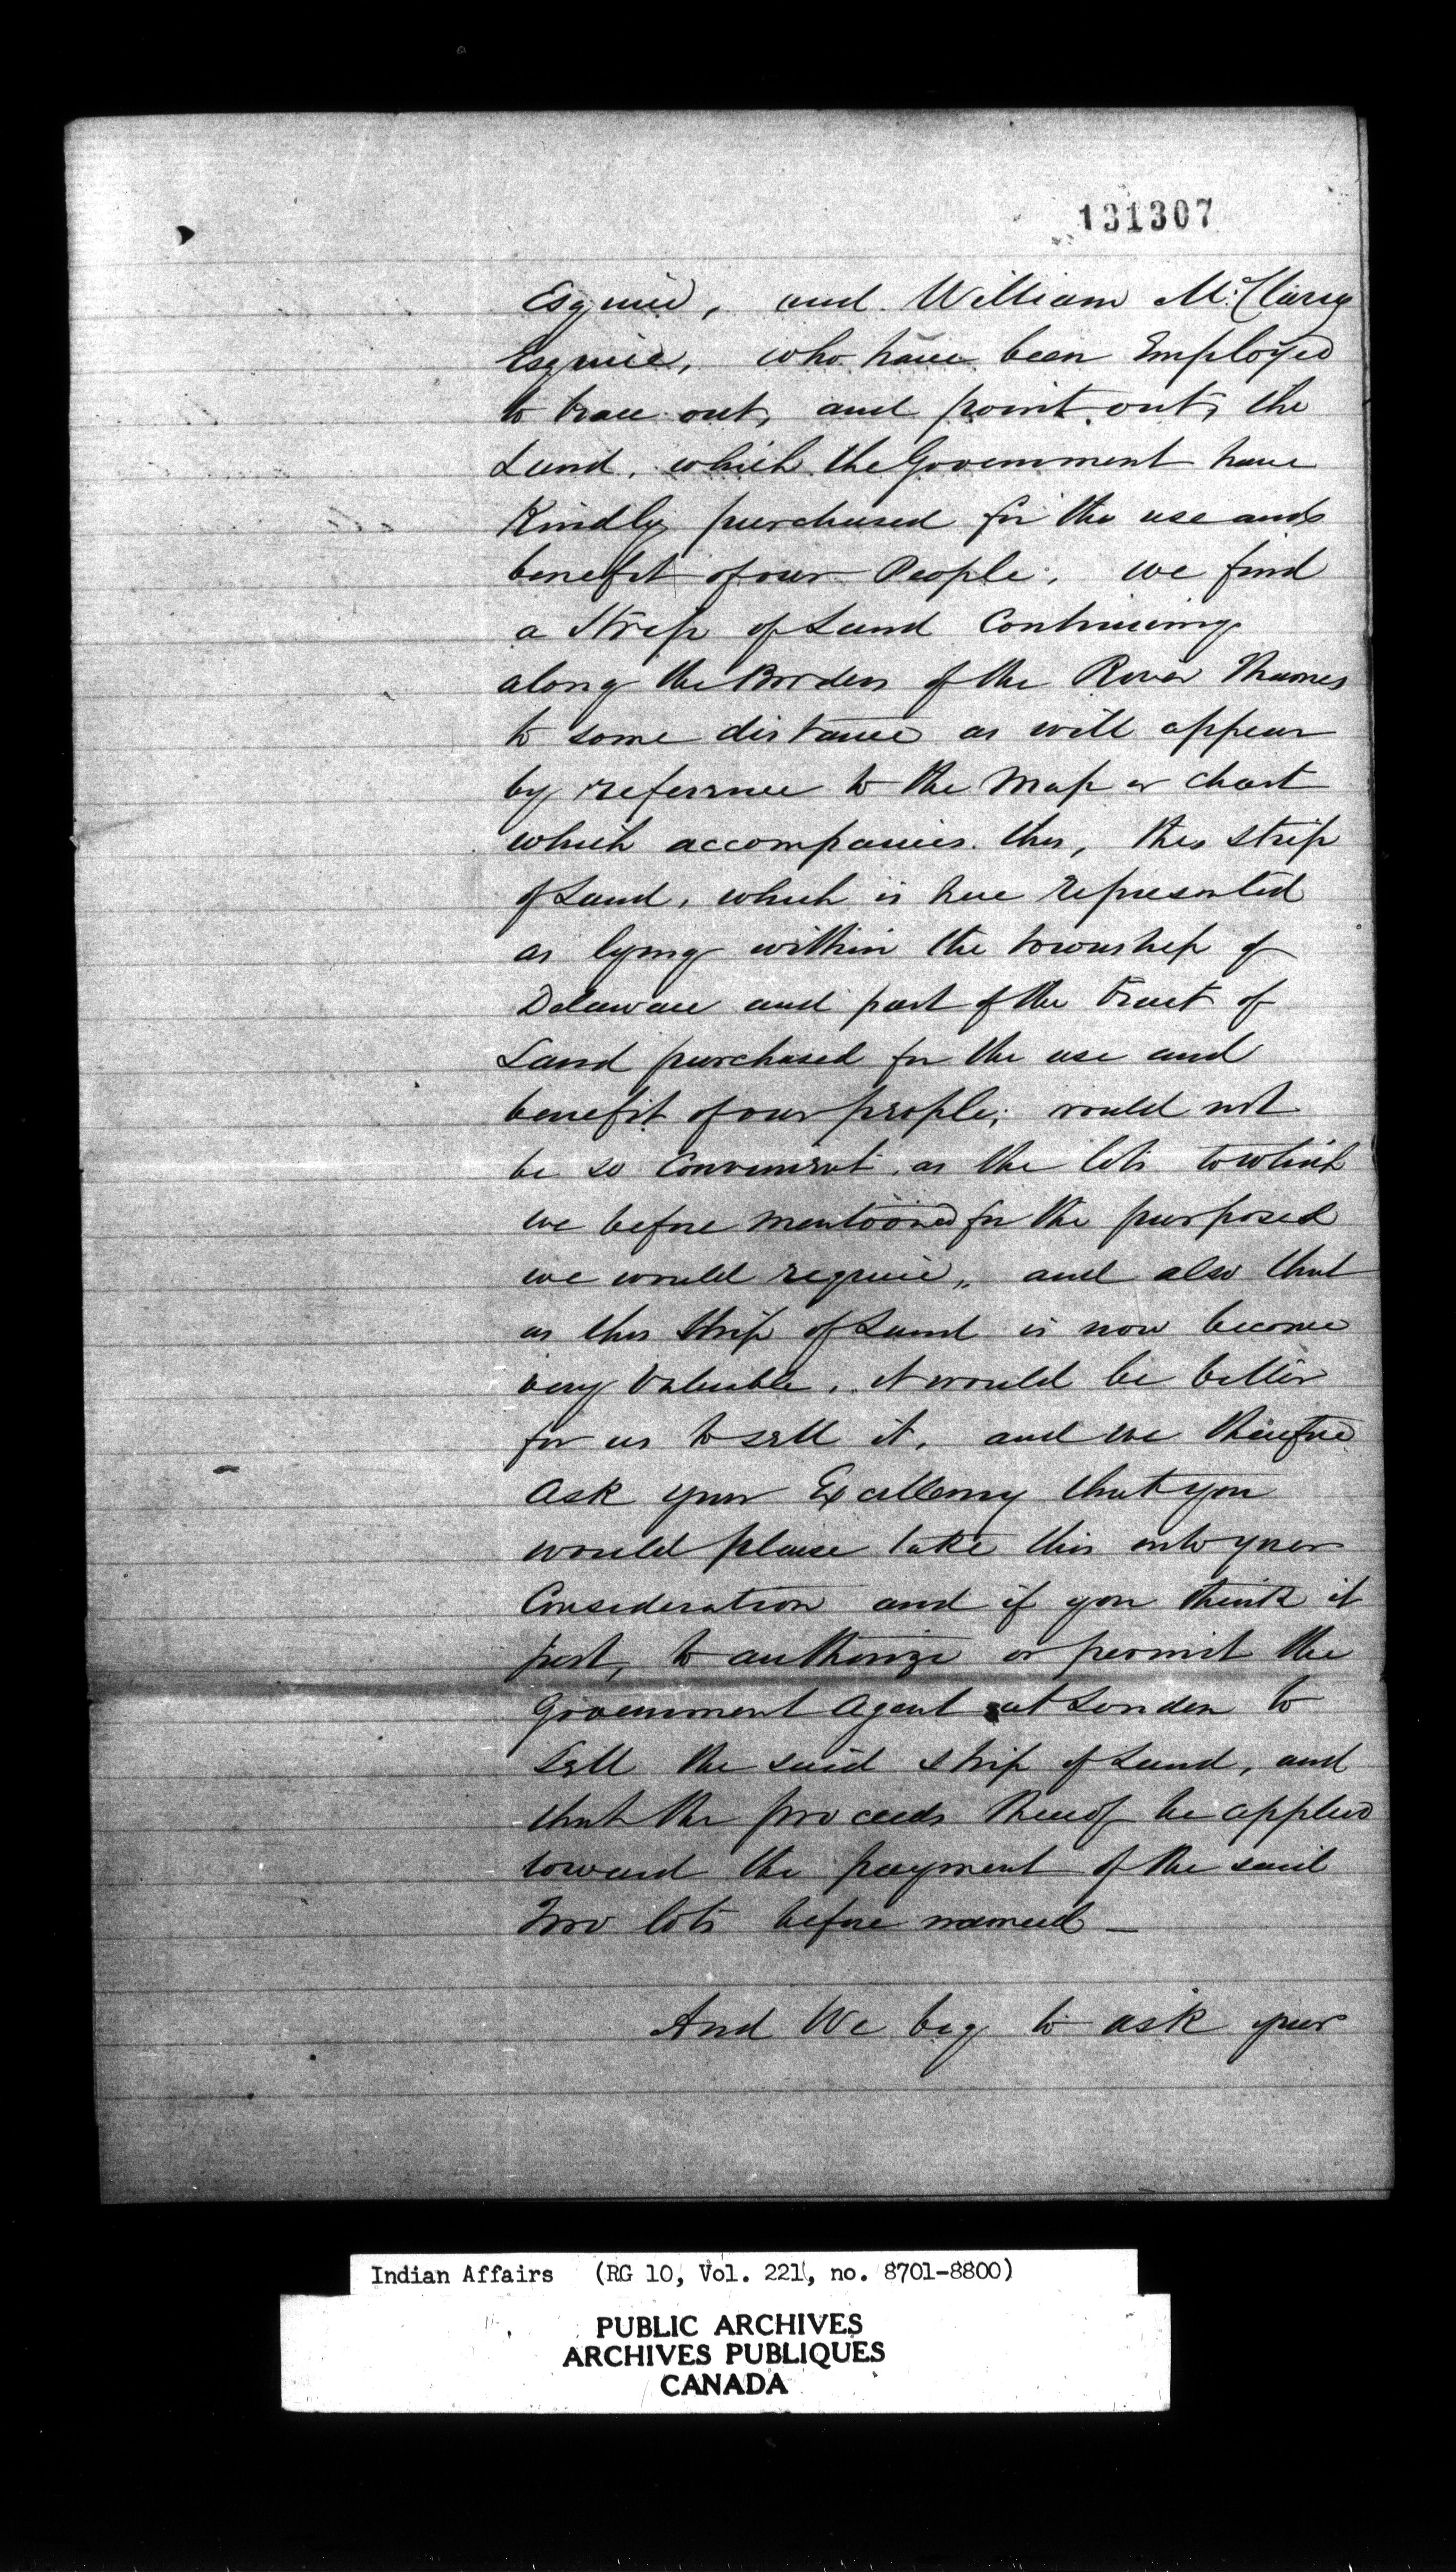 131307
Esquire, and William McClary
Esquire, who have been Employed
to trace out, and point out, the
Land, which the Government have
Kindly purchased for the use and
benefit of our People, we find
a Strip of Land Continuing
along the Borders of the River Thames
to some distance as will appear
by referrnce to the Map or Chart
which accompanies this, this strip
of Land, which is here represented
as lying within the township of
Delaware and part of the tract of
Land purchased for the use and
benefit of our people, would not
be so Convenient, as the lots to which
we before mentioned for the purposes
we would require, and also that
as this Strip of Land is now become
very Valuable, it would be better
for us to sell it, and we therefore
Ask your Excellency that you
would please take this into your
Consideration and if you think it
just, to authorize or permit the
Government Agent at London to
Sell the said strip of Land, and
that the proceeds thereof be applied
toward the payment of the said
Two lots before named —
And We beg to ask your
Indian Affairs (RG 10, Vol. 221, no. 8701-8800)
PUBLIC ARCHIVES
ARCHIVES PUBLIQUES
CANADA